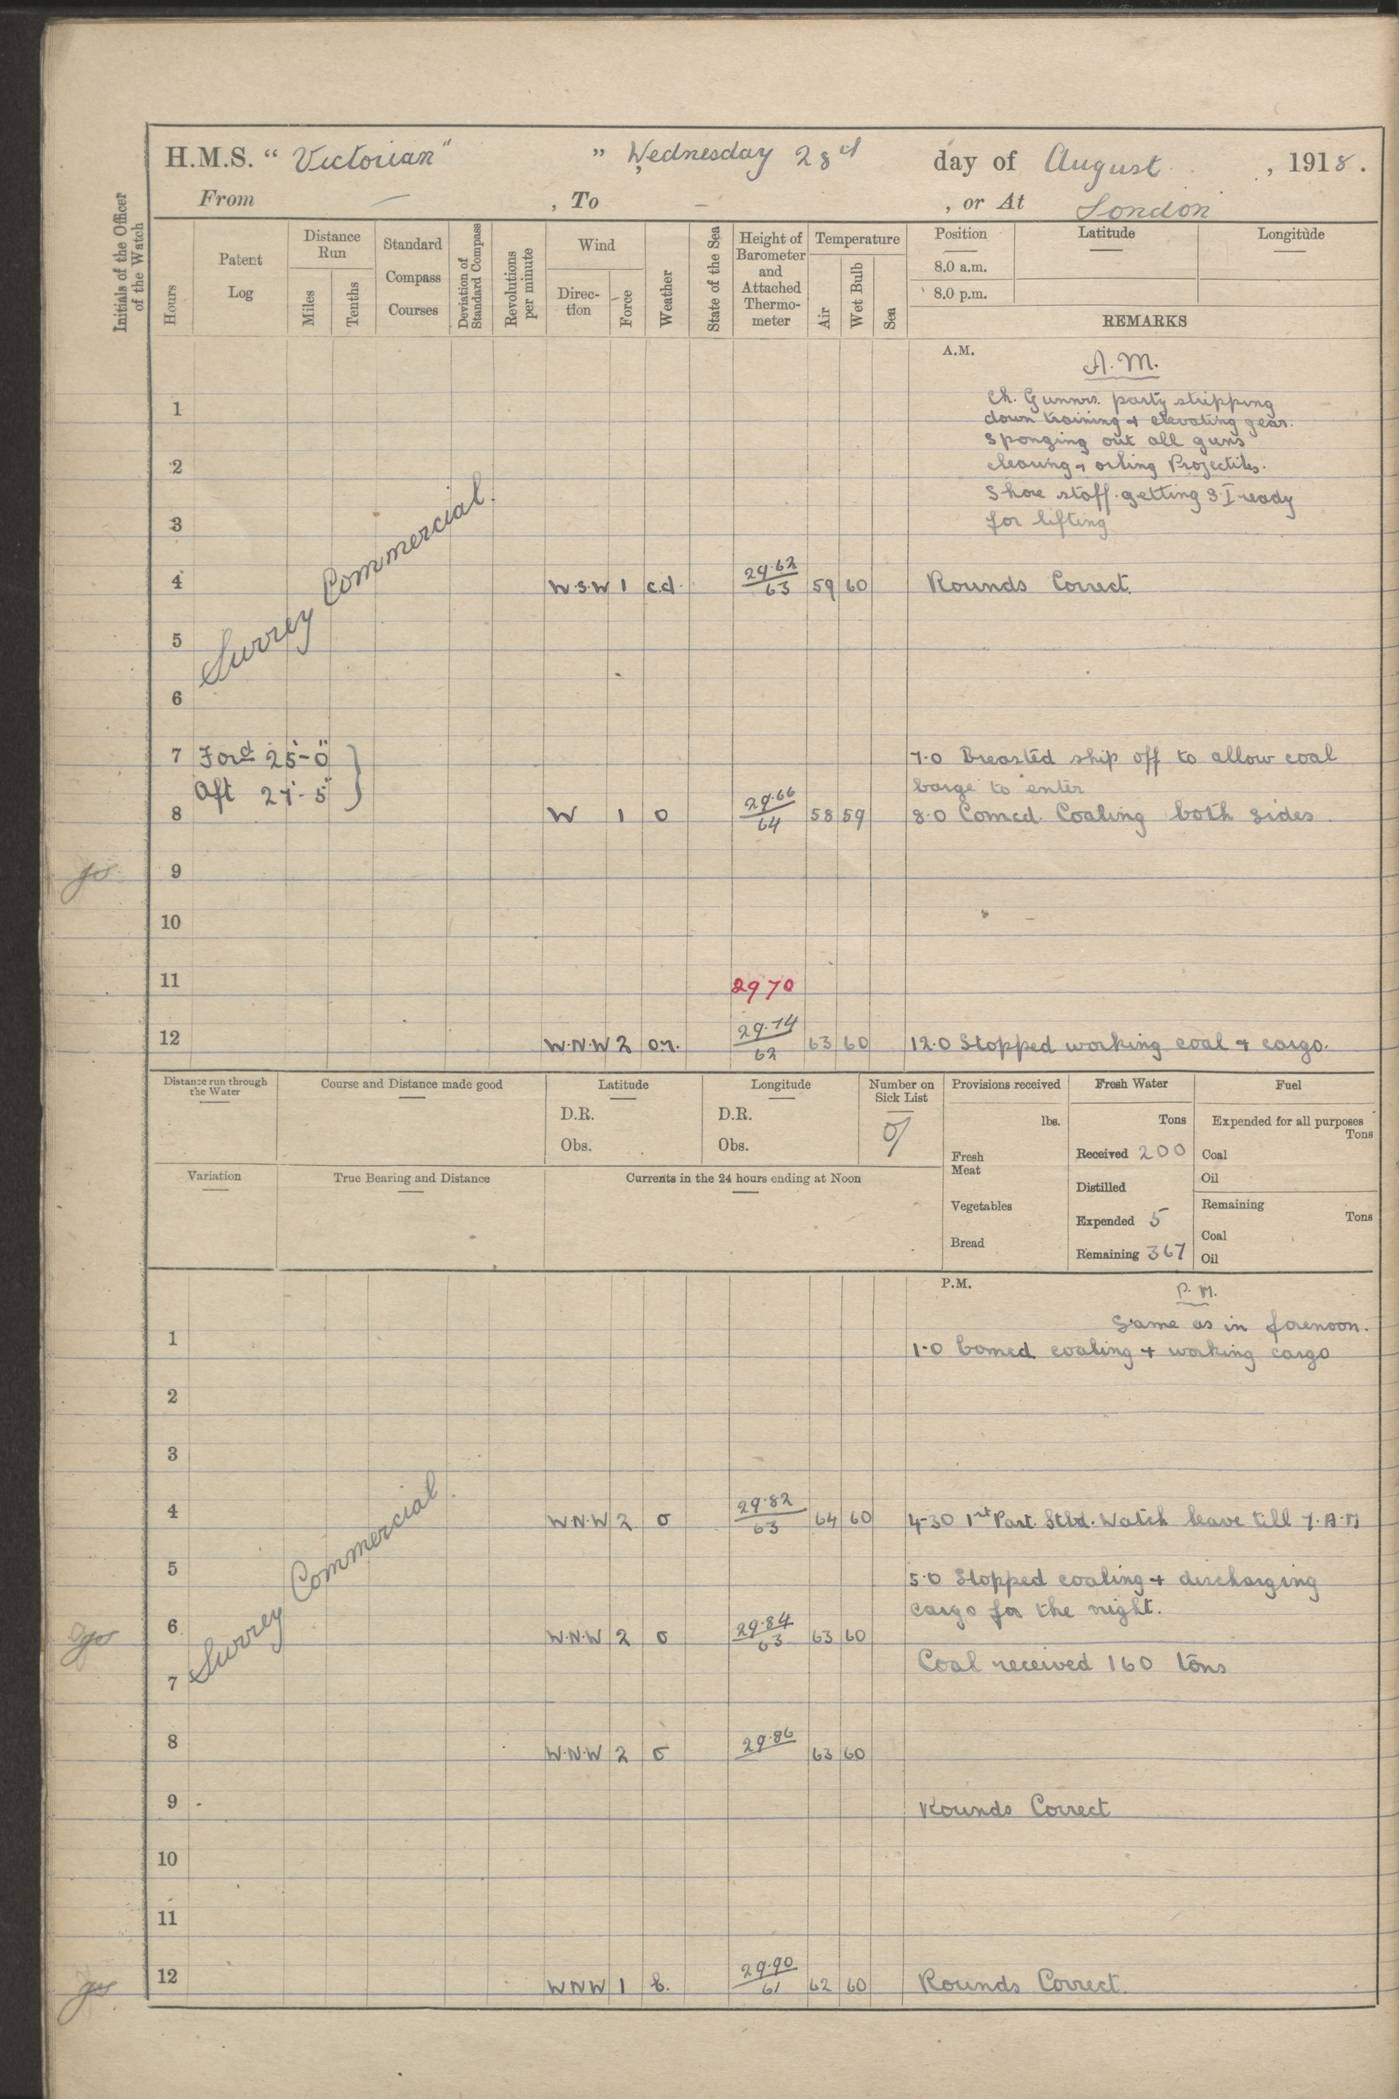 H.M.S. “ Victorian" ” Wednesday 28th day of August , 1918.
From — , To — , or At London
Initials of the Officer of the Watch
Hours
Patent Log
Distance Run
Miles
Tenths
Standard Compass Courses
Deviation of Standard Compass
Revolutions per minute
Wind
Direction
Force
Weather
State of the Sea
Height of Barometer and Attached Thermometer
Temperature
Air
Wet Bulb
Sea
Position
Latitude
Longitude
8.0 a.m.
8.0 p.m.
REMARKS
A.M.
A.M.
1 Ch. Gunnrs. party stripping
down training & elevating gear.
Sponging out all guns
2 cleaning & oiling Projectiles.
Shore staff getting S.I ready
3 for lifting
Surrey Commercial.
4 W.S.W 1 c.d. 29.62/63 59 60 Rounds Correct.
5
6
7 Ford 25'-0" 7.0 Breasted ship off to allow coal
Aft 27'-5" barge to enter
8 W 1 o 29.66/64 58 59 8.0 Comcd. Coaling both sides.
9
10
11 29 70
12 W.N.W 2 o.r. 29.74/62 63 60 12.0 Stopped working coal & cargo.
Distance run through the Water
Course and Distance made good
Latitude
D.R.
Obs.
Longitude
D.R.
Obs.
Number on Sick List
Provisions received
lbs.
Fresh Meat
Vegetables
Bread
Fresh Water
Tons
Received 200
Distilled
Expended 5
Remaining 367
Fuel
Expended for all purposes
Tons
Coal
Oil
Remaining
Tons
Coal
Oil
Variation
True Bearing and Distance
Currents in the 24 hours ending at Noon
P.M.
P.M.
Same as in forenoon.
1 1.0 Comcd coaling & working cargo
2
3
Surrey Commercial.
4 W.N.W 2 o 29.82/63 64 60 4-30 1st Part Stbd. Watch leave till 7.A.M
5 5.0 Stopped coaling & discharging
cargo for the night.
6 W.N.W 2 o 29.84/63 63 60
7 Coal received 160 tons
8 W.N.W 2 o 29.86 63 60
9 Rounds Correct
10
11
12 WNW 1 b. 29.90/61 62 60 Rounds Correct.